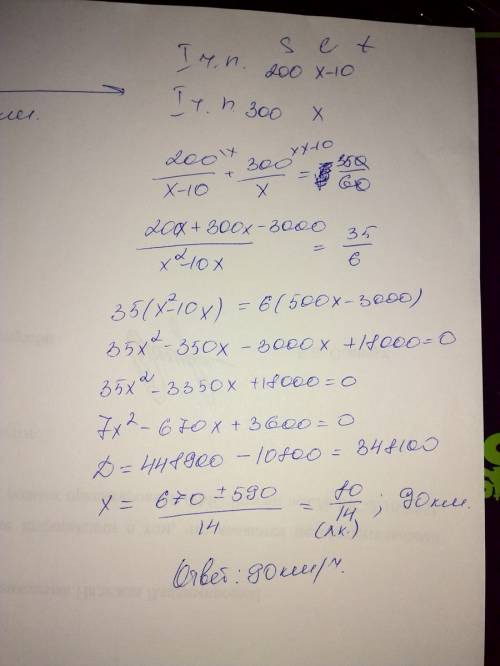 S v t
I ч.п. 200 x-10
I ч.п. 300 x
200\x / x-10 + 300\x-10 / x = 350/60
200x+300x-3000 / x²-10x = 35/6
35(x²-10x) = 6(500x-3000)
35x²-350x-3000x+18000=0
35x²-3350x+18000=0
7x²-670x+3600=0
D=448900-10800=348100
x = 670±590 / 14 = 80/14 ; 90км.
Ответ: 90км/ч.